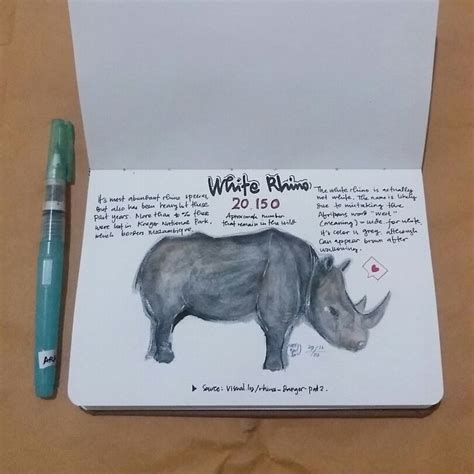 White Rhino
20 150
Approximate number
that remain in the wild
It's most abundant rhino species,
but also has been heavy hit these
past years. More than % these
were lost in Kruger National Park,
which borders Mozambique.
The white rhino is actually
not white. The name is likely
due to mistaking the
Afrikaans word "weit"
(meaning) - wide for white
It's color is grey although
can appear brown after
wallowing.
▶ Source: visual.ly/rhino-danger-pat2.